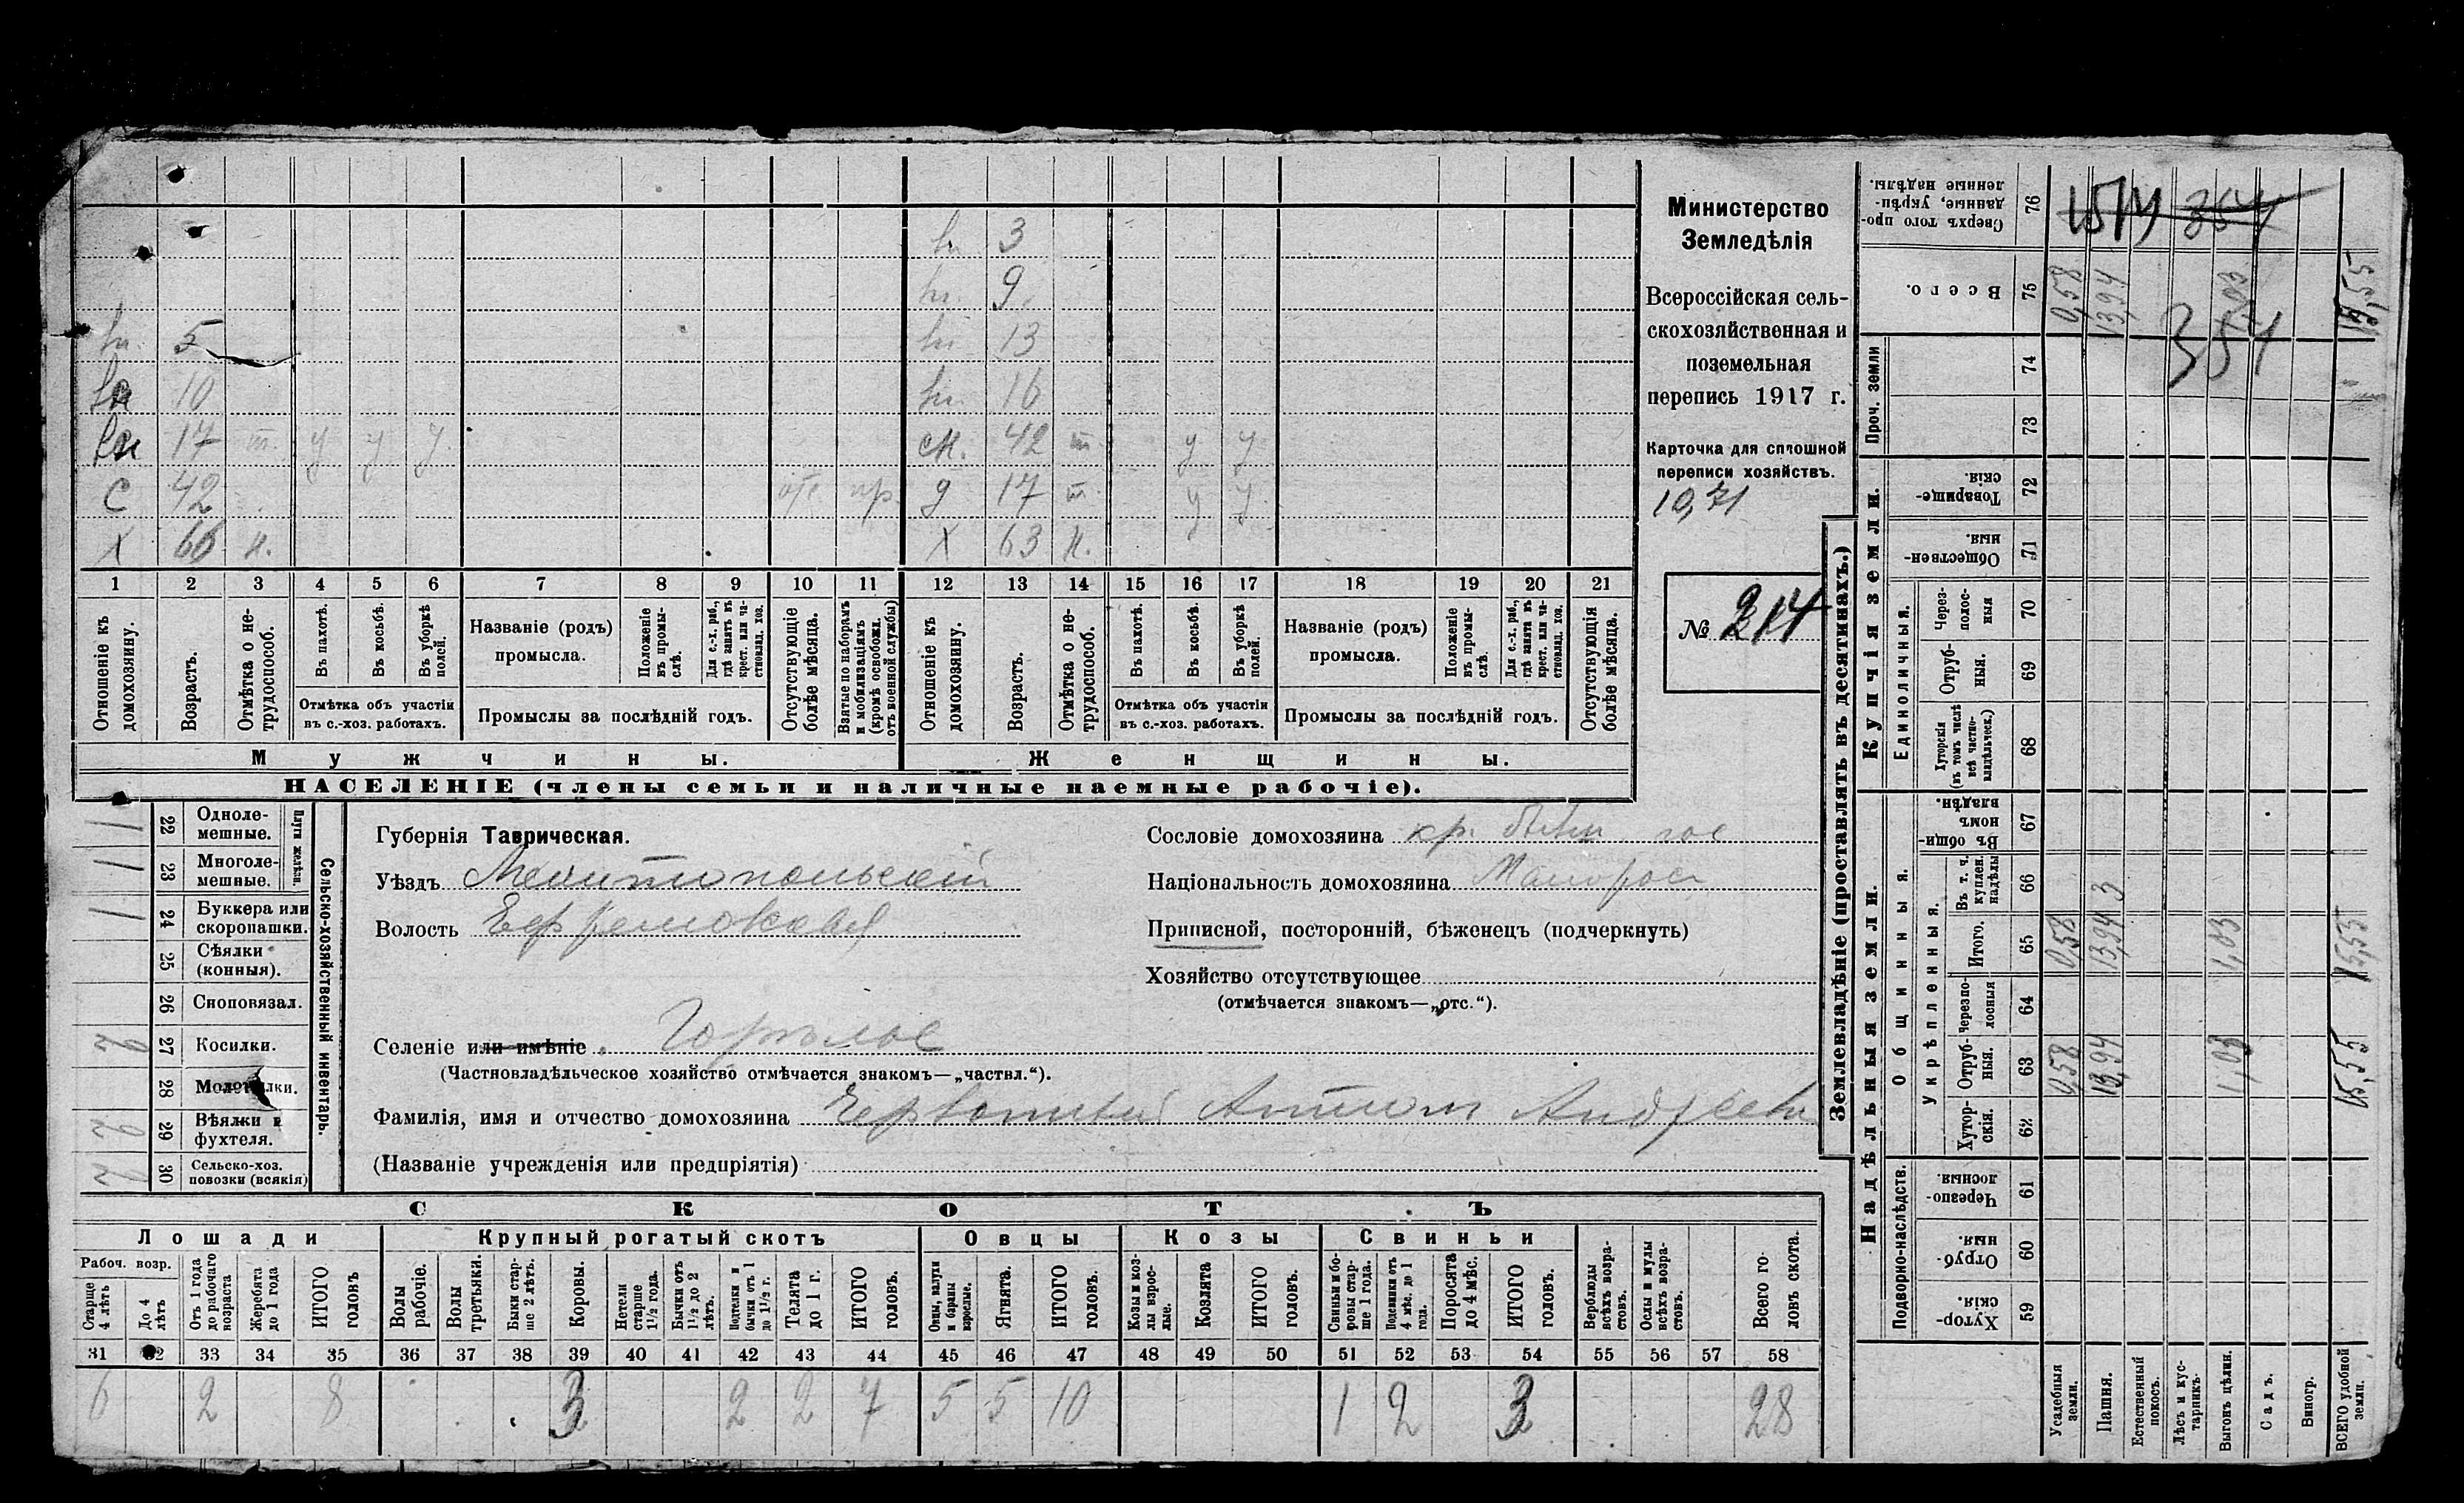 Министерство
Земледѣлія
Всероссійская сель-
скохозяйственная и
поземельная
перепись 1917 г.
Карточка для сплошной
переписи хозяйствъ.
10,71
№ 214
3
9
13
5
16
10
17 т. у у у
см. 42 т у у
с 42 отс пр.
д 17 т. у у
х 66 н.
х 63 н.
1 2 3 4 5 6 7 8 9 10 11 12 13 14 15 16 17 18 19 20 21
Отношеніе къ домохозяину.
Возрастъ.
Отмѣтка о не-трудоспособ.
Въ пахотѣ.
Въ косьбѣ.
Въ уборкѣ полей.
Отмѣтка объ участіи
въ с.-хоз. работахъ.
Названіе (родъ)
промысла.
Положеніе въ промы-слѣ.
Для с.-х. раб., гдѣ занятъ въ крест. или ча-стновлад. хоз.
Промыслы за послѣдній годъ.
Отсутствующіе болѣе мѣсяца.
Взятые по наборамъ и мобилизаціямъ (кромѣ освобожд. отъ военной службы)
Отношеніе къ домохозяину.
Возрастъ.
Отмѣтка о не-трудоспособ.
Въ пахотѣ.
Въ косьбѣ.
Въ уборкѣ полей.
Отмѣтка объ участіи
въ с.-хоз. работахъ.
Названіе (родъ)
промысла.
Положеніе въ промы-слѣ.
Для с.-х. раб., гдѣ занята въ крест. или ча-стновлад. хоз.
Промыслы за послѣдній годъ.
Отсутствующія болѣе мѣсяца.
Мужчины.
Женщины.
НАСЕЛЕНІЕ (члены семьи и наличные наемные рабочіе).
Сельско-хозяйственный инвентарь.
Плуги желѣзн.
1 22 Одноле-мешные.
1 23 Многоле-мешные.
1 24 Буккера или скоропашки.
25 Сѣялки (конныя).
26 Сноповязал.
2 27 Косилки.
28 Молотилки.
2 29 Вѣялки и фухтеля.
2 30 Сельско-хоз. повозки (всякія)
Губернія Таврическая.
Уѣздъ Мелитопольскій
Волость Ефремовская
Селеніе или имѣніе Горѣлое
(Частновладѣльческое хозяйство отмѣчается знакомъ—„частвл.“).
Фамилія, имя и отчество домохозяина Андреевъ
(Названіе учрежденія или предпріятія)
Сословіе домохозяина кр.
Національность домохозяина Малорос
Приписной, посторонній, бѣженецъ (подчеркнуть)
Хозяйство отсутствующее
(отмѣчается знакомъ—„отс.“).
СКОТЪ
Лошади Крупный рогатый скотъ Овцы Козы Свиньи
Рабоч. возр.
Старше 4 лѣтъ
До 4 лѣтъ
Отъ 1 года до рабочаго возраста
Жеребята до 1 года
ИТОГО головъ
Волы рабочіе.
Волы третьяки.
Быки стар-ше 2 лѣтъ.
Коровы.
Нетели старше 1½ года.
Бычки отъ 1½ до 2 лѣтъ.
Подтелки и бычки отъ 1 до 1½ г.
Телята до 1 г.
ИТОГО головъ.
Овцы, валухи и бараны взрослые.
Ягнята.
ИТОГО головъ.
Козы и коз-лы взрос-лые.
Козлята
ИТОГО головъ.
Свиньи и бо-ровы стар-ше 1 года.
Подсвинки отъ 4 мѣс. до 1 года.
Поросята до 4 мѣс.
ИТОГО головъ.
Верблюды всѣхъ возра-стовъ.
Ослы и мулы всѣхъ возра-стовъ.
Всего го-ловъ скота.
31 32 33 34 35 36 37 38 39 40 41 42 43 44 45 46 47 48 49 50 51 52 53 54 55 56 57 58
6 2 8 3 2 2 7 5 5 10 1 2 3 28
Землевладѣніе (проставлять въ десятинахъ.)
Купчія земли.
Надѣльныя земли.
Сверхъ того про-данные, укрѣп-ленные надѣлы. 76
Всего. 75 0,58 13,94 1,03 15,55
354
Проч. земли 74
73
Товарище-скія. 72
Обществен-ныя. 71
Единоличныя.
Через-полос-ныя 70
Отруб-ныя. 69
Хуторскія (въ томъ числѣ всѣ частно-владѣльческ.) 68
Общинныя.
Въ общи-номъ владѣн. 67
Укрѣпленныя.
Въ т. ч. куплен. надѣлы 66 3
Итого. 65 0,58 13,94 1,03 15,55
Черезпо-лосныя 64
Отруб-ныя. 63 0,58 13,94 1,03 15,55
Хутор-скія. 62
Подворно-наслѣдств.
Черезпо-лосныя. 61
Отруб-ныя. 60
Хутор-скія. 59
Усадебныя земли.
Пашня.
Естественный покосъ.
Лѣсъ и кус-тарникъ.
Выгонъ цѣлин.
Садъ.
Виногр.
ВСЕГО удобной земли.